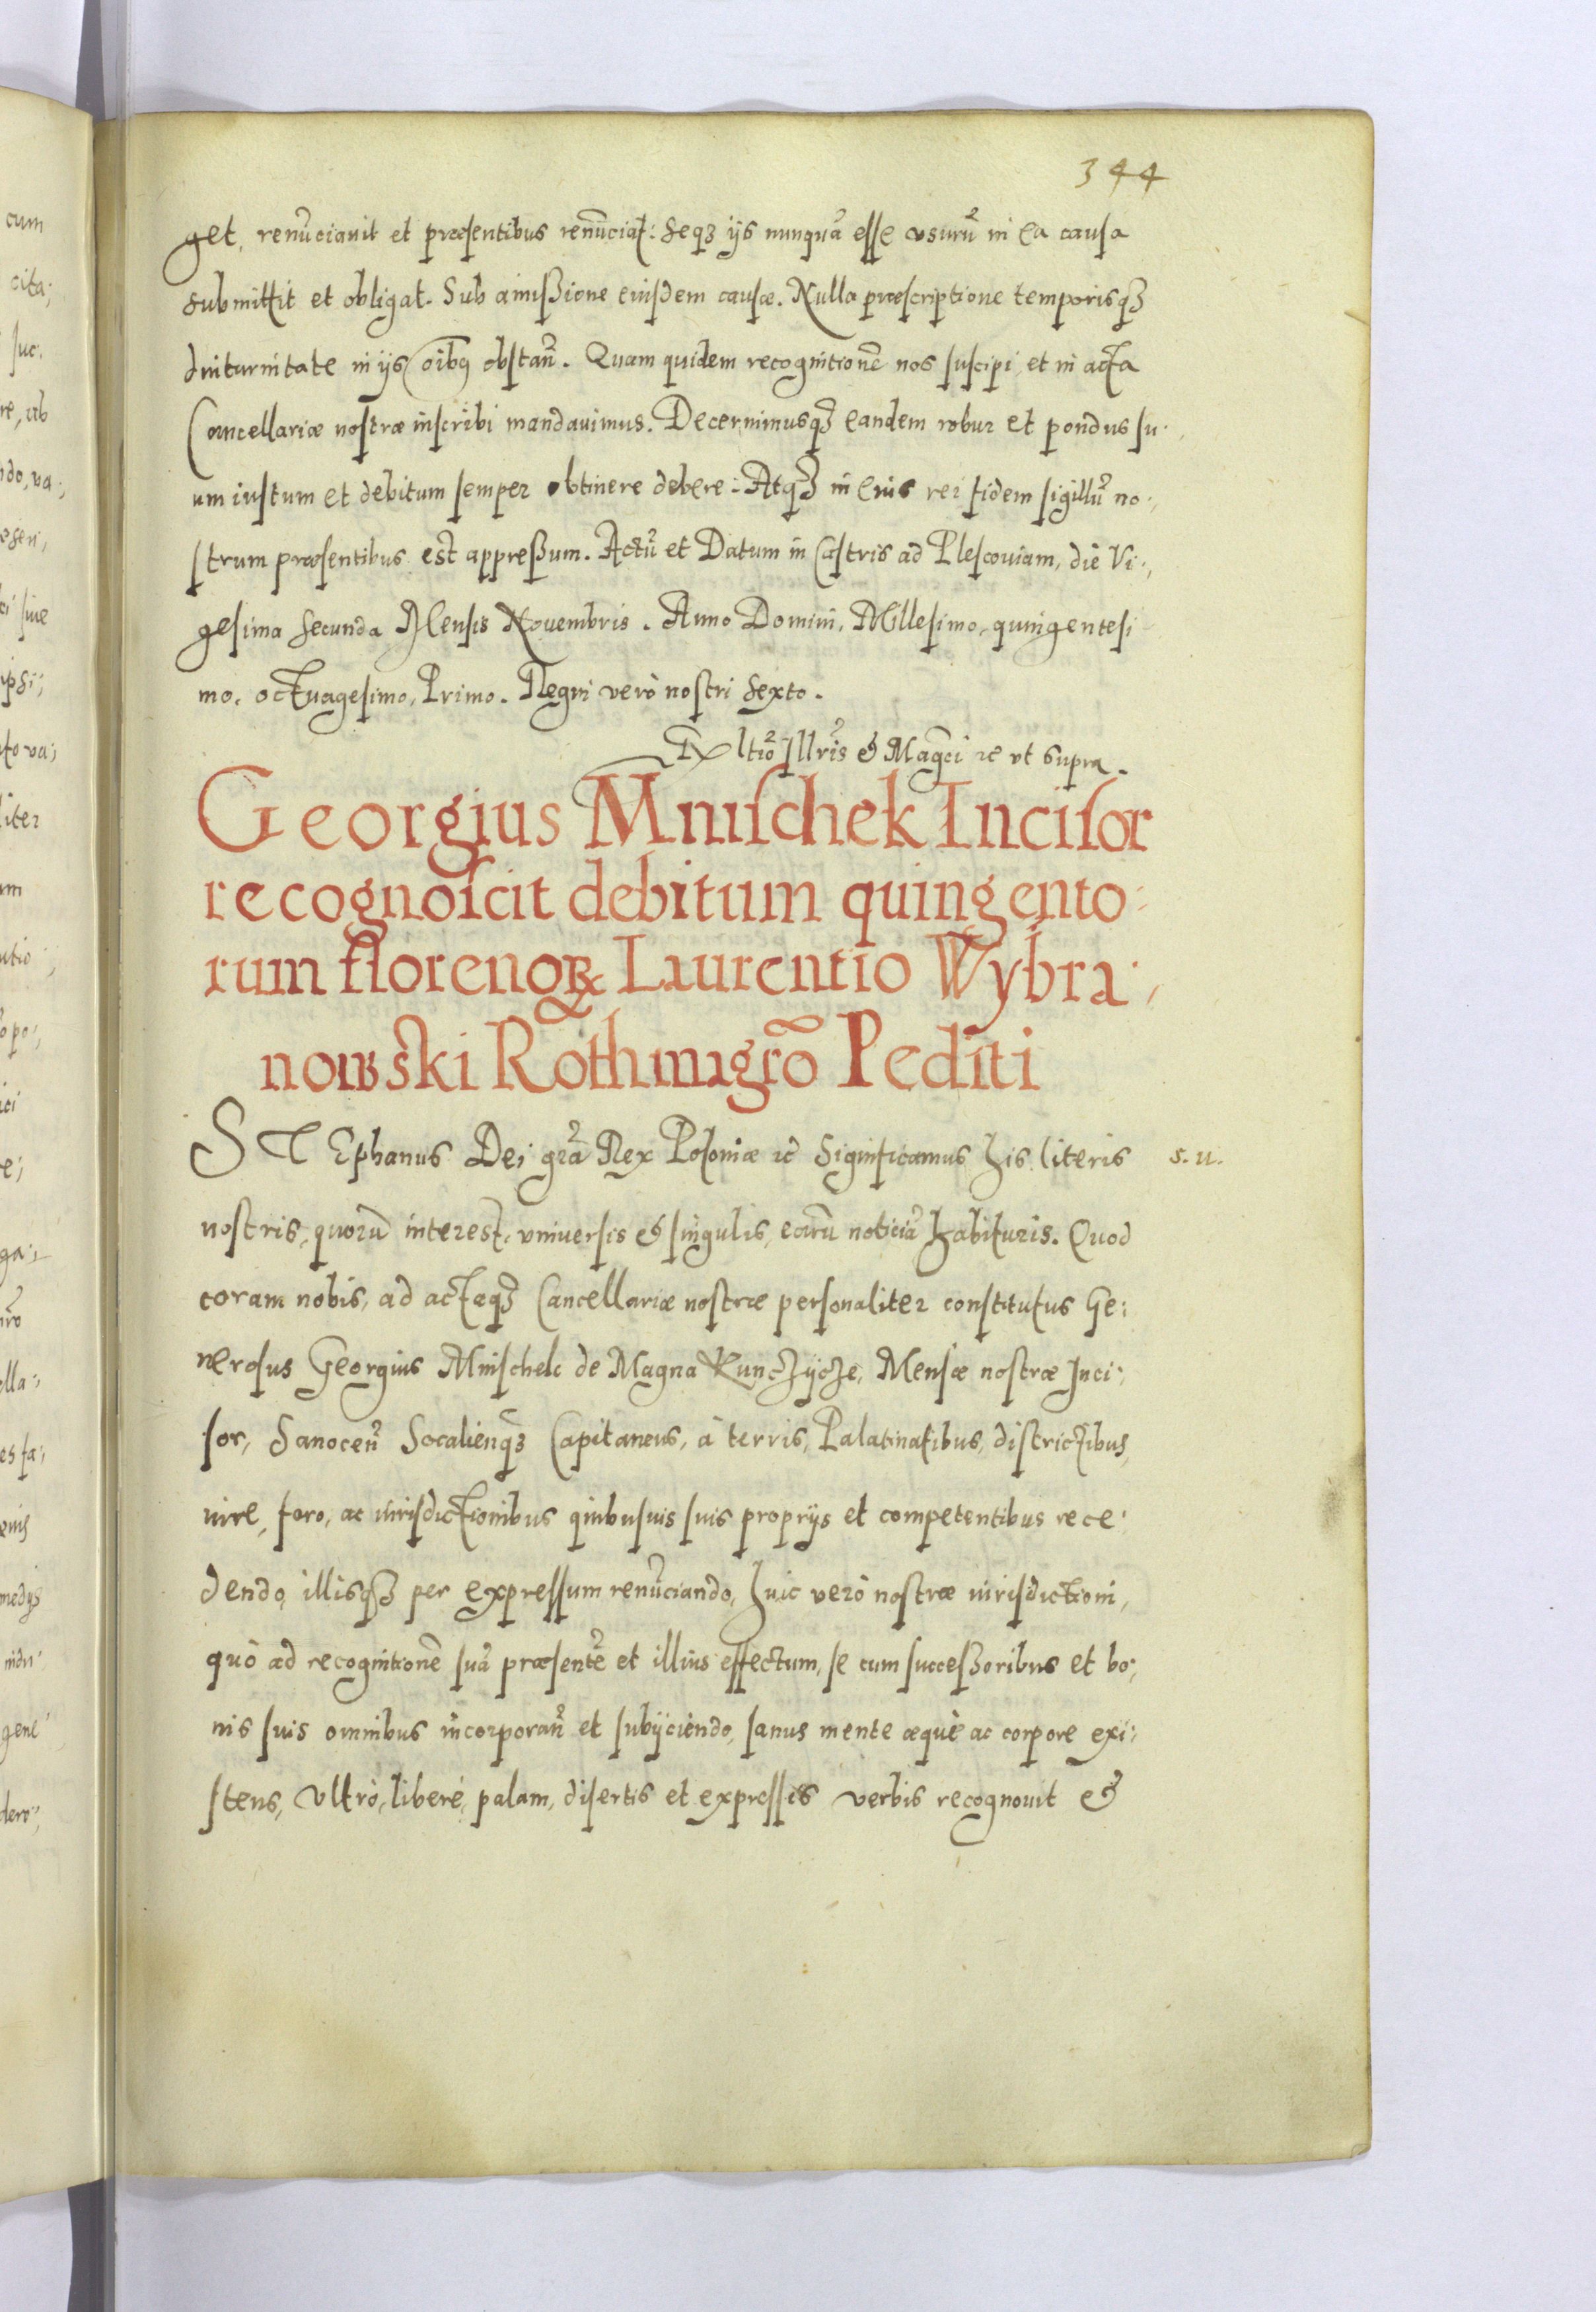 344
get, renũciauit et præsentibus renũciat: seqȝ ijs nunquã esse vsurũ in ea causa
submittit et obligat. Sub amissione eiusdem causæ. Nulla præscriptione temporisqȝ
diuturnitate in ijs oĩbꝯ obstañ. Quam quidem recognitionẽ nos suscipi, et in acta
Cancellariæ nostræ inscribi mandauimus. Decernimusqȝ eandem robur et pondus su:
um iustum et debitum semper obtinere debere: Atqȝ in eius rei fidem sigillũ no:
strum præsentibus est appressum. Actũ et Datum in Castris ad Plescouiam, die Vi:
gesima secunda Mensis Nouembris. Anno Domini, Millesimo, quingentesi
mo, octuagesimo, Primo. Regni verò nostri sexto.
Ex ltiõ Illris & Magci ꝛc vt supra.
Georgius Mnischek Incisor
recognoscit debitum quingento:
rum florenoꝝ Laurentio Wybra:
nowski Rothmagrõ Pediti
STEphanus Dei grã Rex Poloniæ ꝛc Significamus his literis
s. u.
nostris, quorũ interest, vniuersis & singulis, earũ noticiã habituris. Quod
coram nobis, ad actaqȝ Cancellariæ nostræ personaliter constitutus Ge:
nerosus Georgius Mnischek de Magna Kunczycze, Mensæ nostræ Inci:
sor, Sanoceñ Socalieñqȝ Capitaneus, à terris, Palatinatibus, districtibus,
iure, foro, ac iurisdictionibus quibusuis suis proprijs et competentibus rece:
dendo, illisqȝ per expressum renũciando, huic verò nostræ iurisdictioni,
quò ad recognitionẽ suã præsentẽ et illius effectum, se cum successoribus et bo:
nis suis omnibus incorporañ et subijciendo, sanus mente æquè ac corpore exi:
stens, Vltrò, liberè, palam, disertis et expressis verbis recognouit &